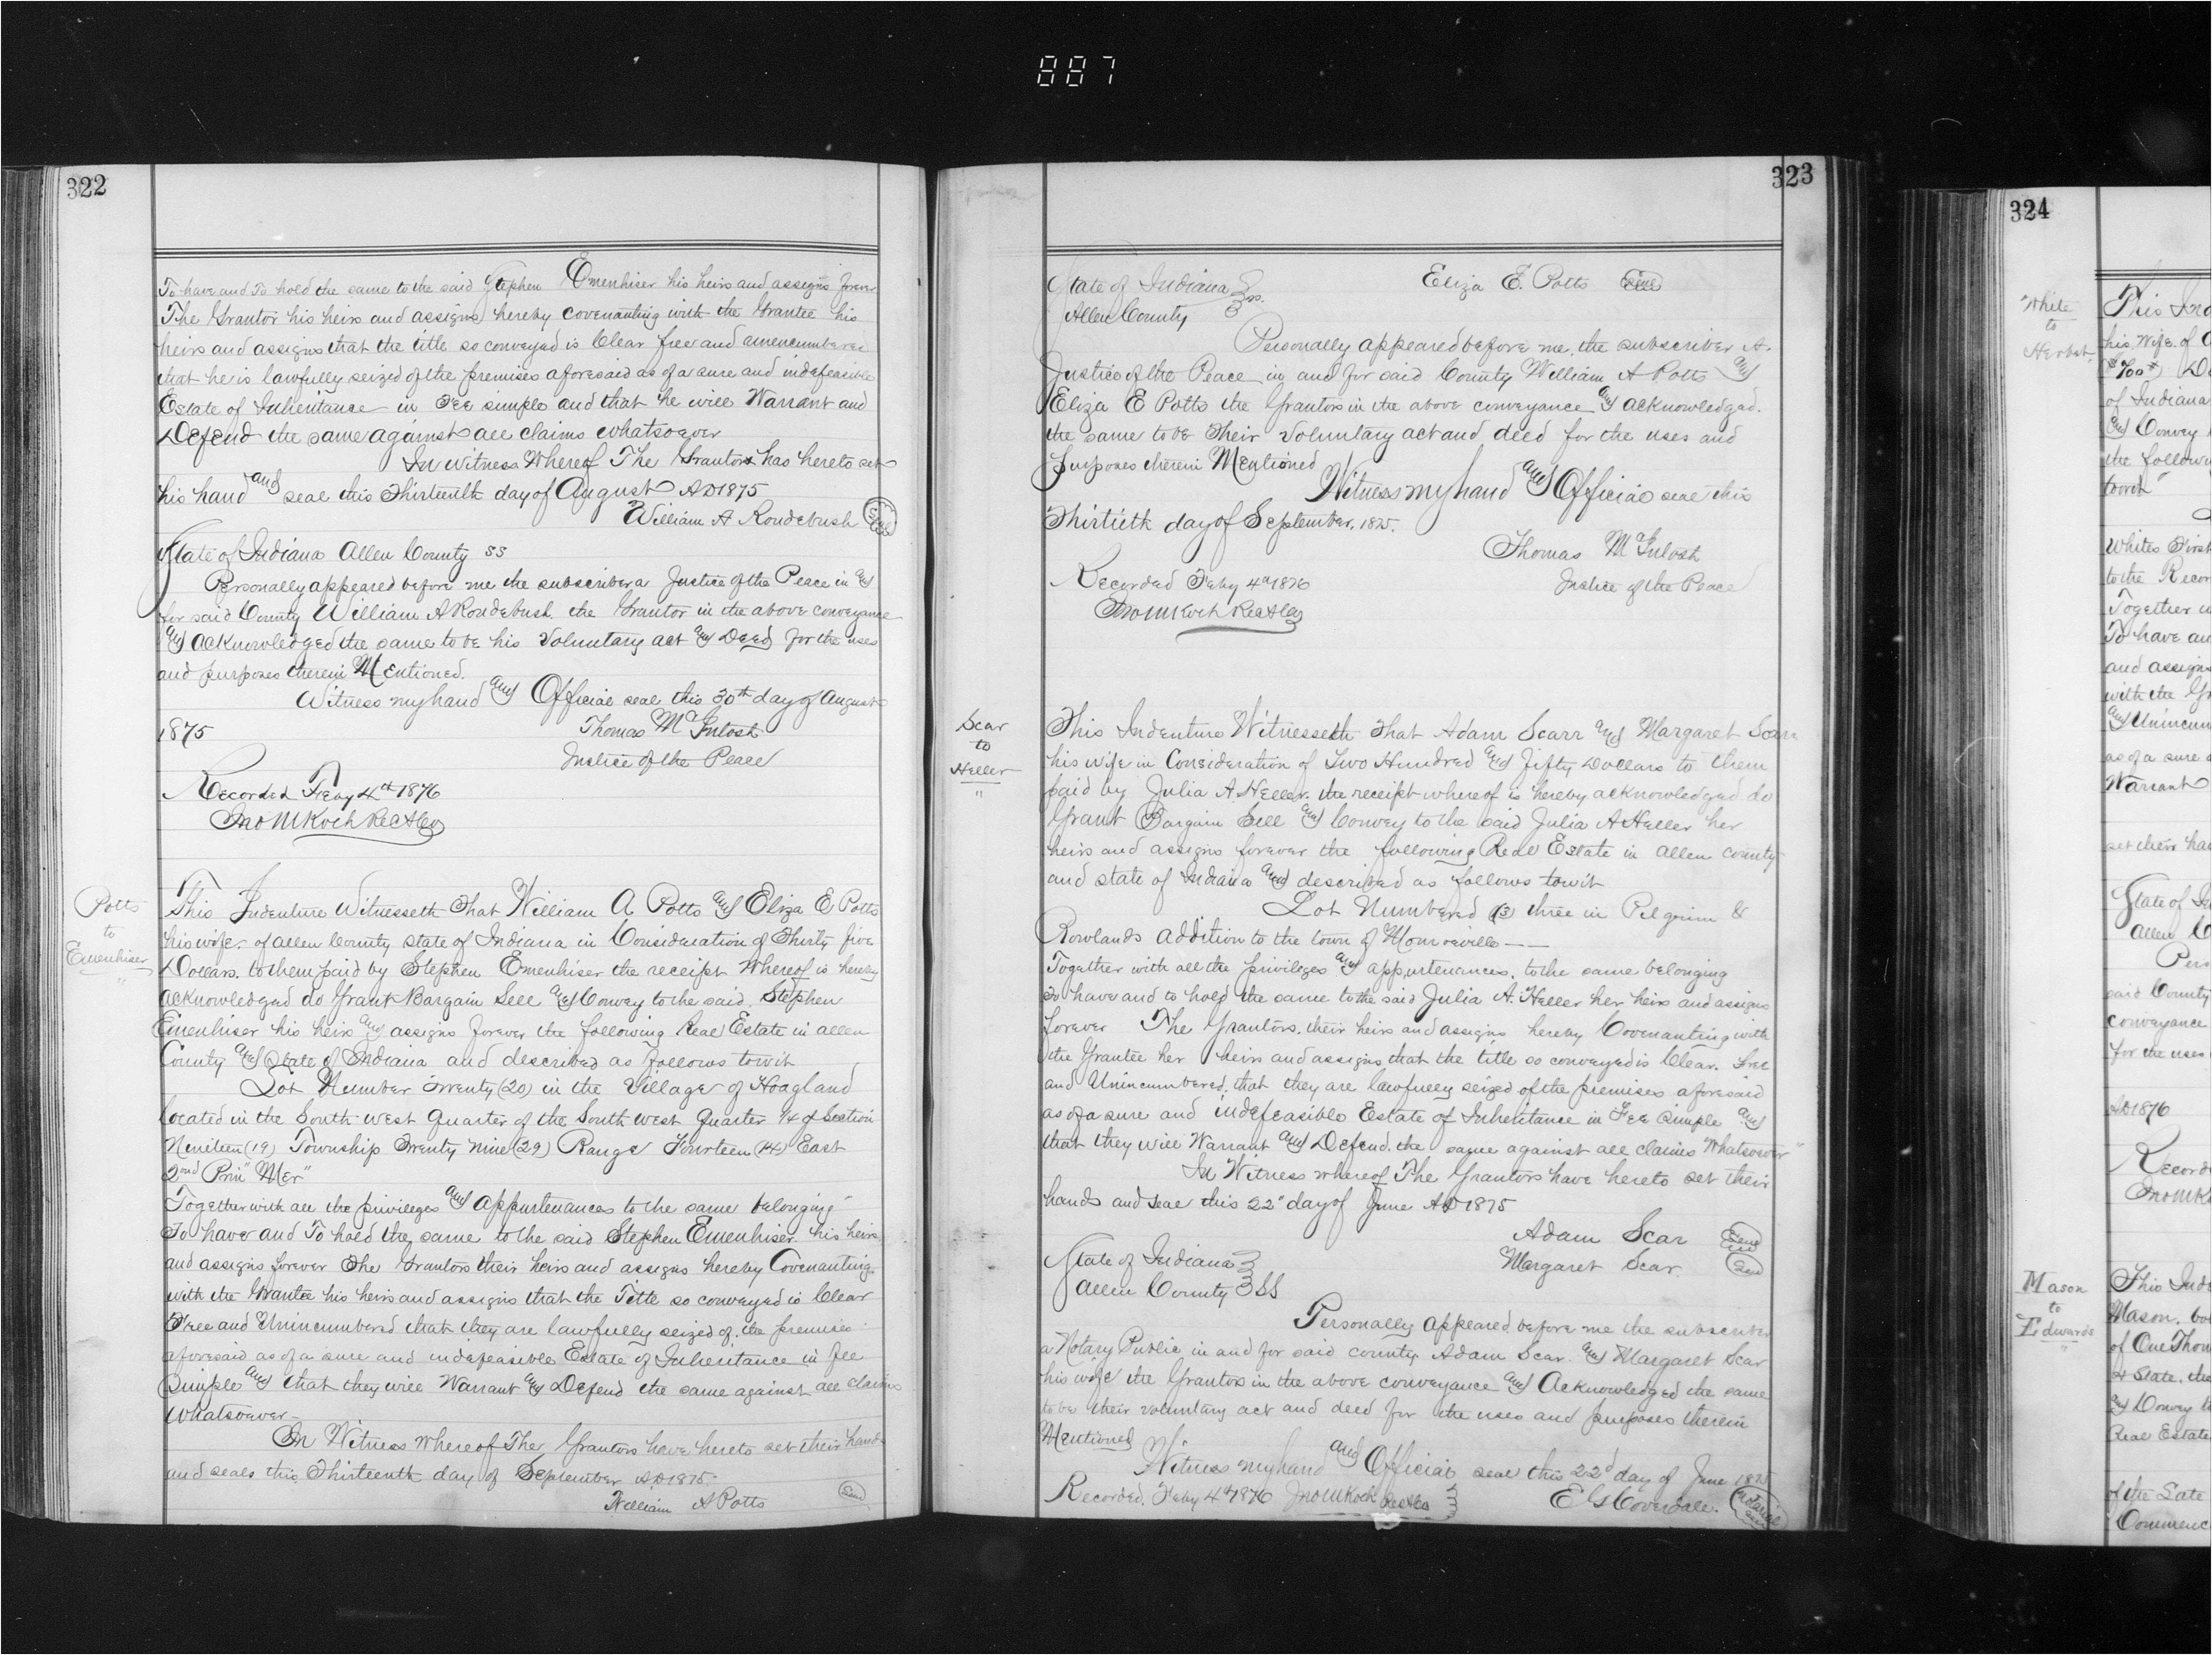 887
322
To have and To hold the same to the said Stephen Emenhiser his heirs and assigns forever
The Grantor his heirs and assigns hereby covenanting with the Grantee his
heirs and assigns that the title so conveyed is Clear free and unencumbered
that he is lawfully seized of the premises aforesaid as of a sure and indefeasible
Estate of Inheritance in Fee simple and that he will Warrant and
Defend the same against all claims whatsoever
In witness Whereof The Grantor has hereto set
his hand and seal this Thirteenth day of August AD 1875
William A Roudebush Seal
State of Indiana Allen County SS
Personally appeared before me the subscriber a Justice of the Peace in and
for said County William A Roudebush the Grantor in the above conveyance
and acknowledged the same to be his Voluntary act and Deed for the uses
and purposes therein Mentioned.
Witness my hand and Official seal this 30th day of August
1875 Thomas McIntosh
Justice of the Peace
Recorded Feby 4th 1876
Jno M Koch RecACo
Potts
to
Emenhiser
"
This Indenture Witnesseth That William A Potts and Eliza E Potts
his wife of Allen County state of Indiana in Consideration of Thirty five
Dollars. to them paid by Stephen Emenhiser the receipt Whereof is hereby
acknowledged do Grant Bargain Sell and Convey to the said Stephen
Emenhiser his heirs and assigns forever the following Real Estate in Allen
County and State of Indiana and described as follows towit
Lot Number Twenty (20) in the Village of Hoagland
located in the South West Quarter of the South West Quarter 1/4 of Section
Nineteen (19) Township Twenty Nine (29) Range Fourteen (14) East
2nd Prin" Mer"
Together with all the privileges and appurtenances to the same belonging
To have and To hold the same to the said Stephen Emenhiser his heirs
and assigns forever The Grantors their heirs and assigns hereby Covenanting
with the Grantee his heirs and assigns that the Title so conveyed is Clear
Free and Unincumbered that they are lawfully seized of the premises
aforesaid as of a sure and indefeasible Estate of Inheritance in fee
Simple and that they will Warrant and Defend the same against all claims
Whatsoever
In Witness whereof The Grantors have hereto set their hands
and seals this Thirteenth day of September AD 1875
William A Potts Seal
323
Eliza E. Potts Seal
State of Indiana
Allen County ss.
Personally appeared before me, the subscriber A.
Justice of the Peace in and for said County William A Potts and
Eliza E Potts the Grantors in the above conveyance and acknowledged.
the same to be Their Voluntary act and deed for the uses and
purposes therein Mentioned
Witness my hand and Official seal this
Thirtieth day of September. 1875.
Thomas McIntosh
Justice of the Peace
Recorded Feby 4th 1876
Jno M Koch RecACo
Scar
to
Heller
"
This Indenture Witnesseth That Adam Scarr and Margaret Scarr
his wife in Consideration of Two Hundred and Fifty Dollars to them
paid by Julia A. Heller. the receipt whereof is hereby acknowledged do
Grant Bargain Sell and Convey to the said Julia A Heller her
heirs and assigns forever the following Real Estate in Allen County
and state of Indiana and described as follows towit
Lot Numbered (3) three in Pilgrim &
Rowlands addition to the town of Monroeville
Together with all the privileges and appurtenances. to the same belonging
To have and to hold the same to the said Julia A. Heller her heirs and assigns
forever The Grantors. their heirs and assigns hereby Covenanting with
the Grantee her heirs and assigns that the title so conveyed is Clear. Free
and Unincumbered. that they are lawfully seized of the premises aforesaid
as of a sure and indefeasible Estate of Inheritance in Fee Simple and
that they will Warrant and Defend. the same against all claims Whatsoever"
In Witness whereof The Grantors have hereto set their
hands and seal this 22" day of June AD 1875
Adam Scar Seal
Margaret Scar Seal
State of Indiana
Allen County SS
Personally appeared before me the subscriber
a Notary Public in and for said county Adam Scar. and Margaret Scar
his wife the Grantors in the above conveyance and Acknowledged the same
to be their voluntary act and deed for the uses and purposes therein
Mentioned
Witness my hand and Official seal this 22d day of June 1875
Recorded. Feby 4th 1876 Jno M Koch RecACo E G Coverdale. Notarial Seal
324
White
to
Herbst
his Wife of
of Indiana
and Convey
the following
towit
Whites First
to the
Together
To have
and assigns
with the
and Unincum
as of a sure
Warrant
set their
State of
Allen
said County
conveyance
for the uses
AD 1876
Mason
to
Edwards
"
This
Mason.
of One
& State. the
and Convey
Real Estate
of the
Commenc